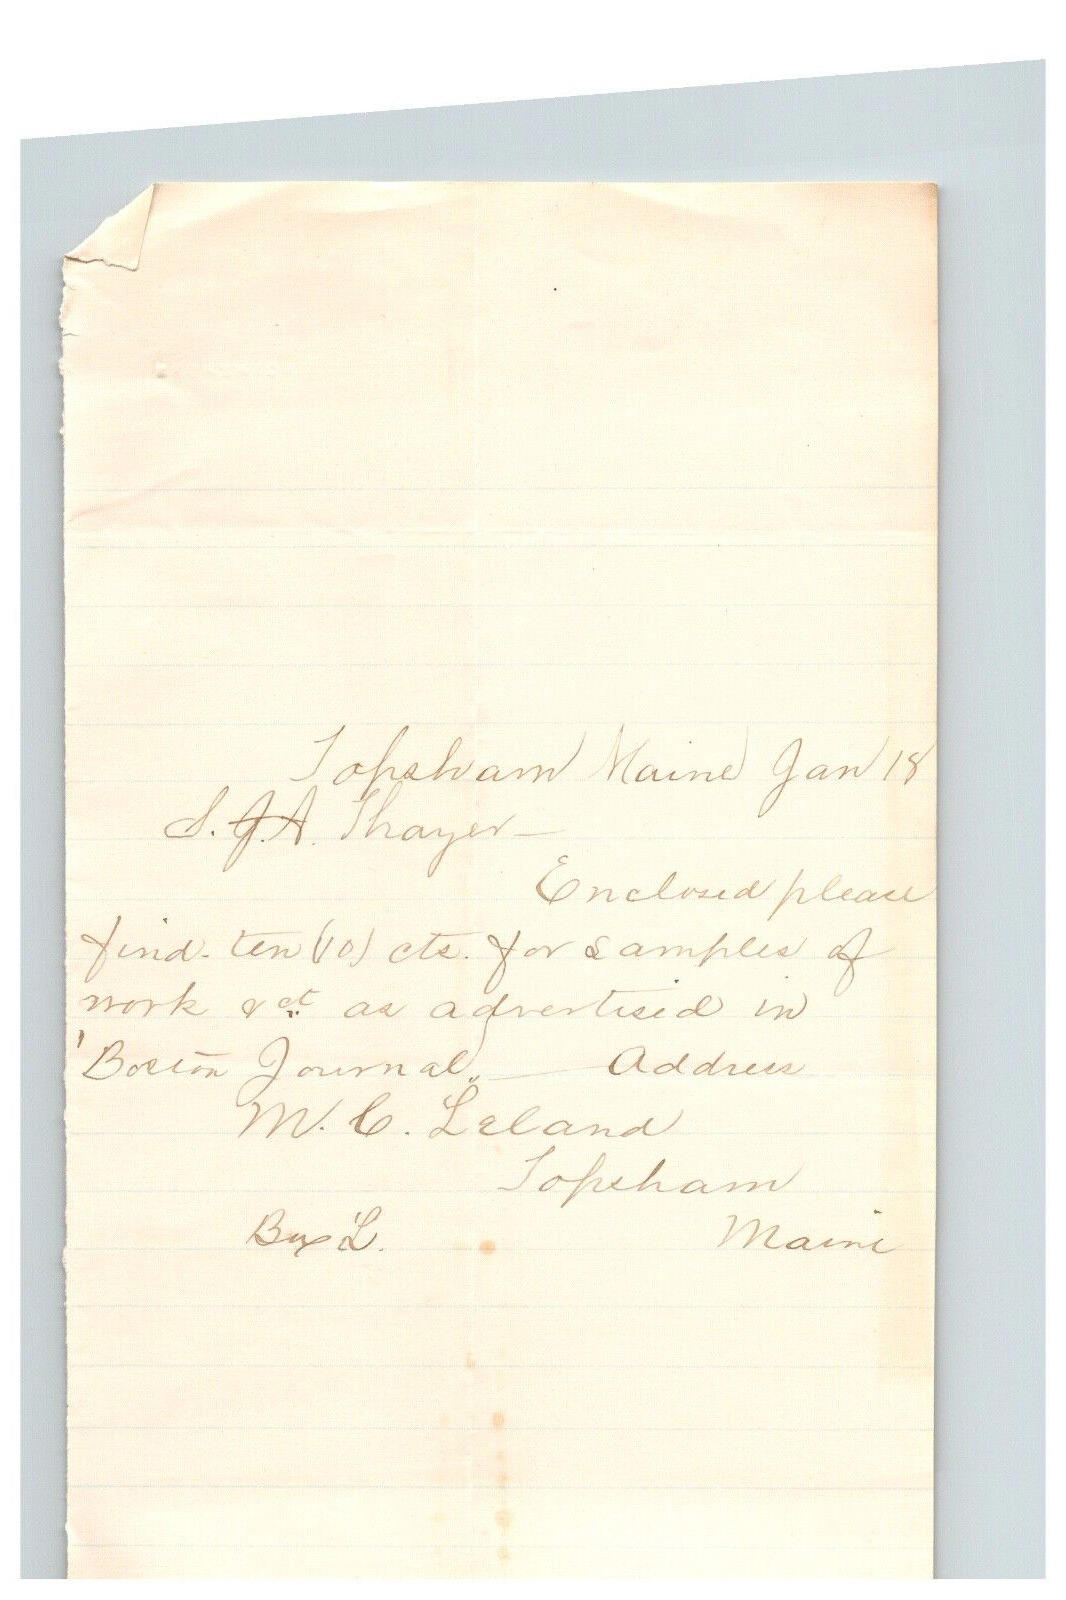 Topsham Maine Jan 18
S. J. A. Thayer—
Enclosed please
find. ten (10) cts. for samples of
work &ct. as advertised in
'Boston Journal„ — Address
M. C. Leland
Topsham
Box 'L. Maine